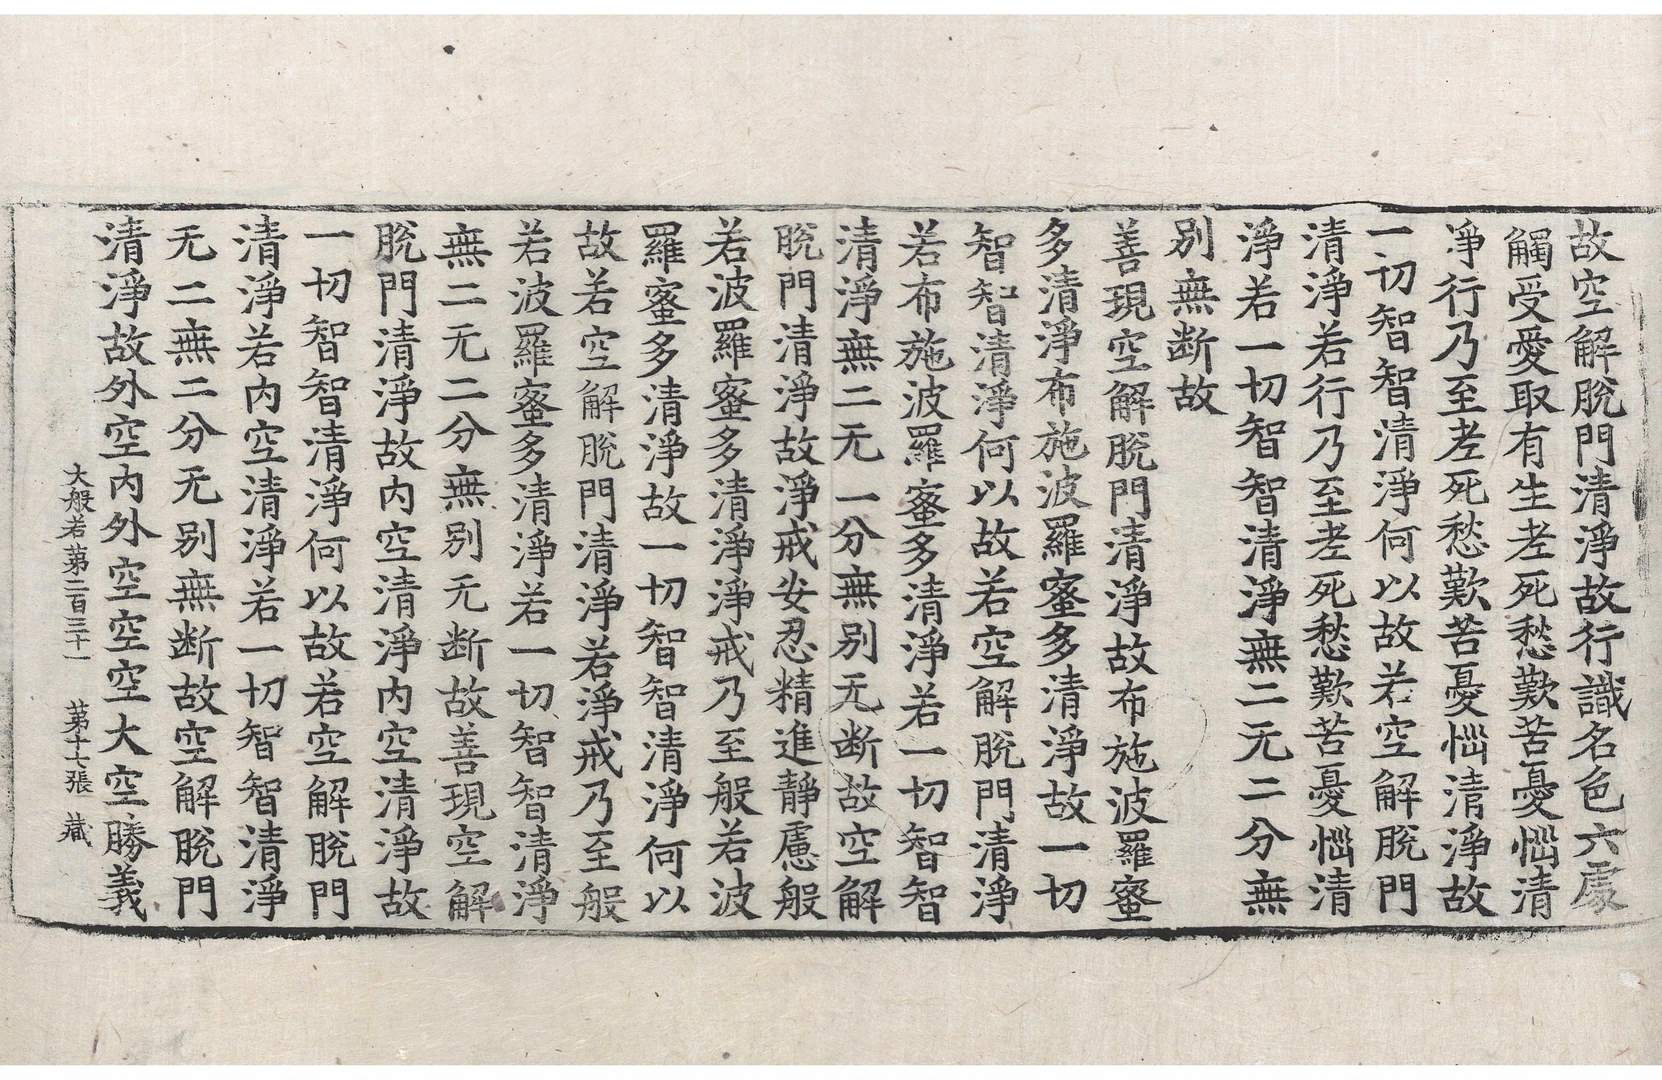 故空解脫門清淨故行識名色六處
觸受愛取有生老死愁歎苦憂惱清
淨行乃至老死愁歎苦憂惱清淨故
一切智智清淨何以故若空解脫門
清淨若行乃至老死愁歎苦憂惱清
淨若一切智智清淨無二无二分無
別無斷故
善現空解脫門清淨故布施波羅蜜
多清淨布施波羅蜜多清淨故一切
智智清淨何以故若空解脫門清淨
若布施波羅蜜多清淨若一切智智
清淨無二无一分無別无断故空解
脫門清淨故淨戒安忍精進靜慮般
若波羅蜜多清淨淨戒乃至般若波
羅蜜多清淨故一切智智清淨何以
故若空解脫門清淨若淨戒乃至般
若波羅蜜多清淨若一切智智清淨
無二无二分無別无断故善現空解
脫門清淨故內空清淨內空清淨故
一切智智清淨何以故若空解脫門
清淨若內空清淨若一切智智清淨
无二無二分无別無断故空解脫門
清淨故外空內外空空空大空勝義
大般若第二百三十一 第十七張 藏